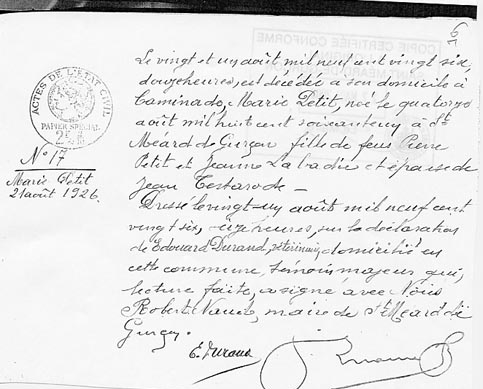 76
COPIE CERTIFIÉE CONFORME
ACTES DE L'ÉTAT CIVIL
PAPIER SPÉCIAL
N° 17
Marie Petit
21 août 1926.
Le vingt et un août mil neuf cent vingt six,
douze heures, est décédée à son domicile à
Caminado, Marie Petit, née le quatorze
août mil huit cent soixante à St
Méard de Gurçon fille de feus Pierre
Petit et Jeanne Labadie et épouse de
Jean Testarode —
Dressé le vingt-un août mil neuf cent
vingt six, heures, sur la déclaration
de Edouard Durand, domicilié en
cette commune, témoin majeur qui,
lecture faite, a signé avec Nous
Robert maire de St Méard de
Gurçon.
E. Durand